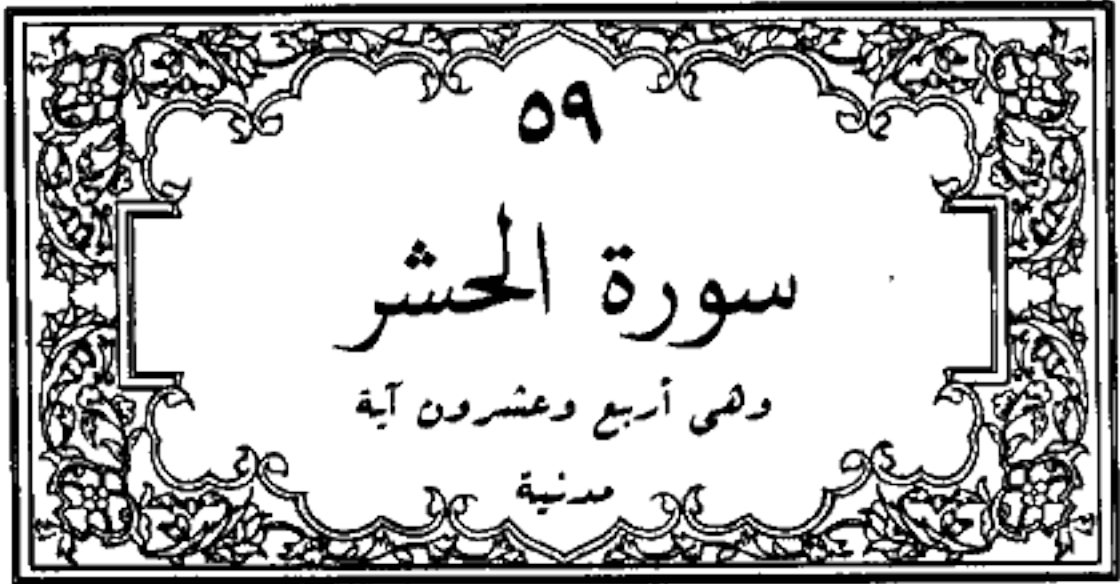 ٥٩
سورة الحشر
وهي أربع وعشرون آية
مدنية